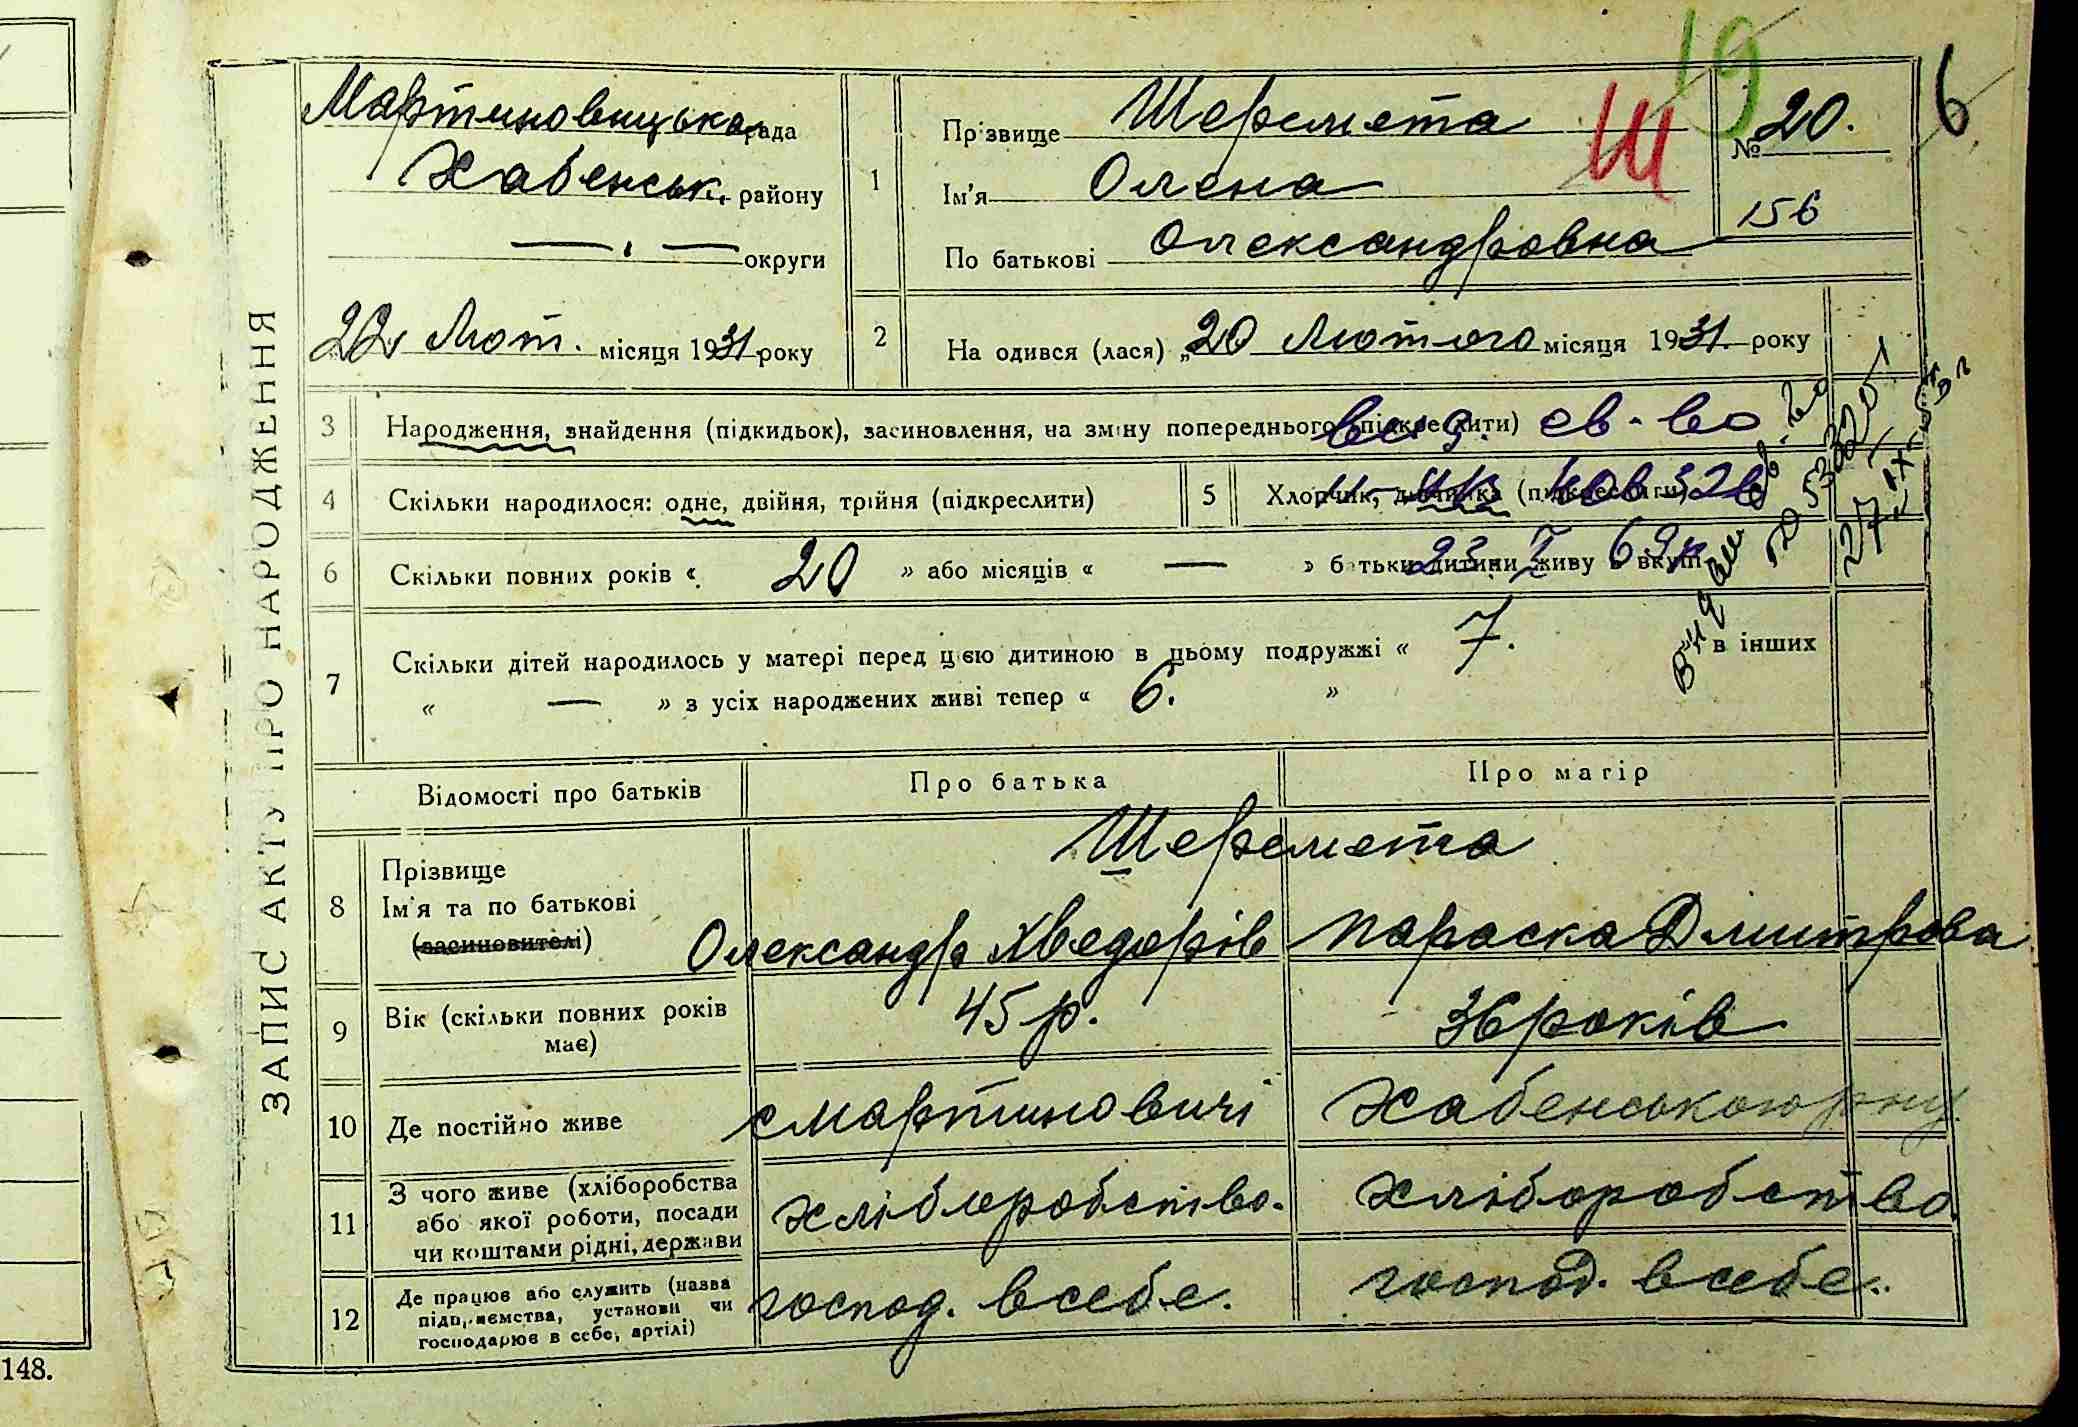 ЗАПИС АКТУ ПРО НАРОДЖЕННЯ
Мартиновицька рада
Хабенськ. району
— . — округи
22 Лют. місяця 1931 року
1
Прізвище Шеремета
Ім'я Олена
По батькові Олександровна
Ш
19
№ 20.
156
6
2
На одився (лася) „20 Лютого місяця 1931. року
3
Народження, знайдення (підкидьок), засиновлення, на зміну попереднього (підкреслити)
св-во
4
Скільки народилося: одне, двійня, трійня (підкреслити)
5
Хлопчик, дівчинка (підкреслити)
6
Скільки повних років « 20 » або місяців « — » батьки дитини живу ь вкупі
23 I 69р
27.IX-
7
Скільки дітей народилось у матері перед цією дитиною в цьому подружжі « 7. в інших
« — » з усіх народжених живі тепер « 6. »
Відомості про батьків
Про батька
Про матір
8
Прізвище
Ім'я та по батькові
(засиновителі)
Шеремета
Олександр Хведорів
Параска Дмитрова
9
Вік (скільки повних років
має)
45 р.
36 років
10
Де постійно живе
с Мартиновичі
Хабенського р-ну
11
З чого живе (хліборобства
або якої роботи, посади
чи коштами рідні, держави
хліборобство.
хліборобство
12
Де працює або служить (назва
підприємства, установи чи
господарює в себе, артілі)
господ. в себе.
господ. в себе.
148.